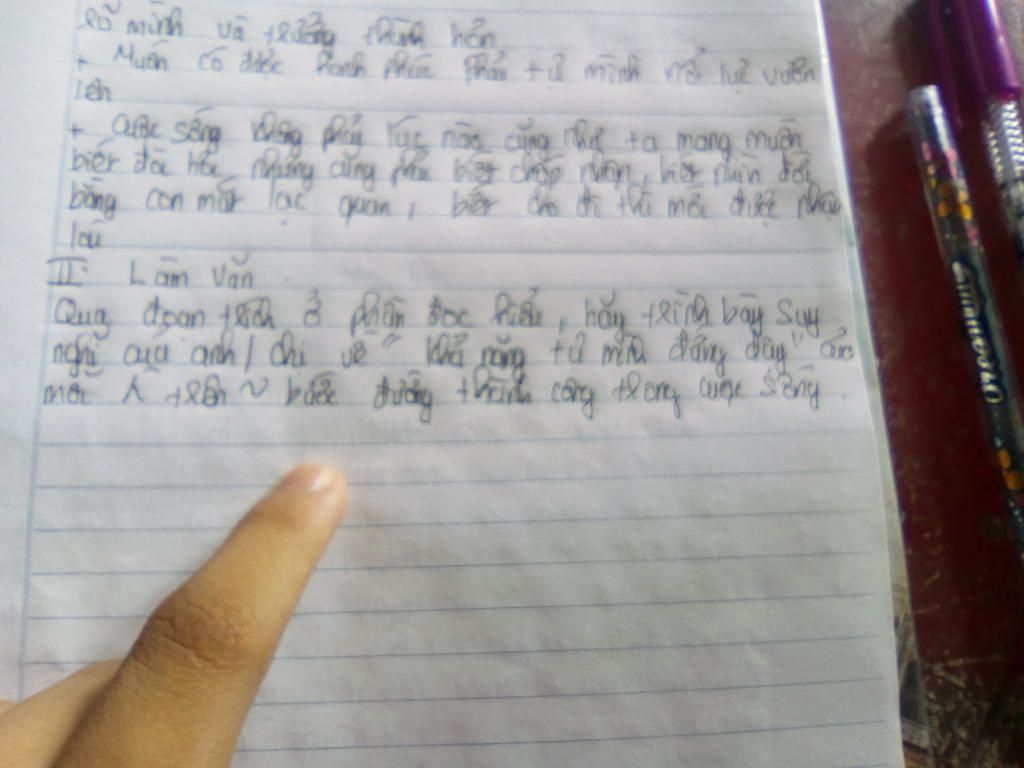 rõ mình và trưởng thành hơn
+ Muốn có được hạnh phúc phải tự mình nổ lực vươn
lên
+ Cuộc sống không phải lúc nào cũng như ta mong muốn
biết đòi hỏi nhưng cũng phải biết chấp nhận, biết nhìn đời
bằng con mắt lạc quan, biết cho đi thì mới được nhận
lại
II: Làm văn
Qua đoạn trích ở phần đọc hiểu, hãy trình bày suy
nghĩ của anh/ chị về "khả năng tự mình đứng dậy" của
mỗi trên ~ bước đường thành công trong cuộc sống.